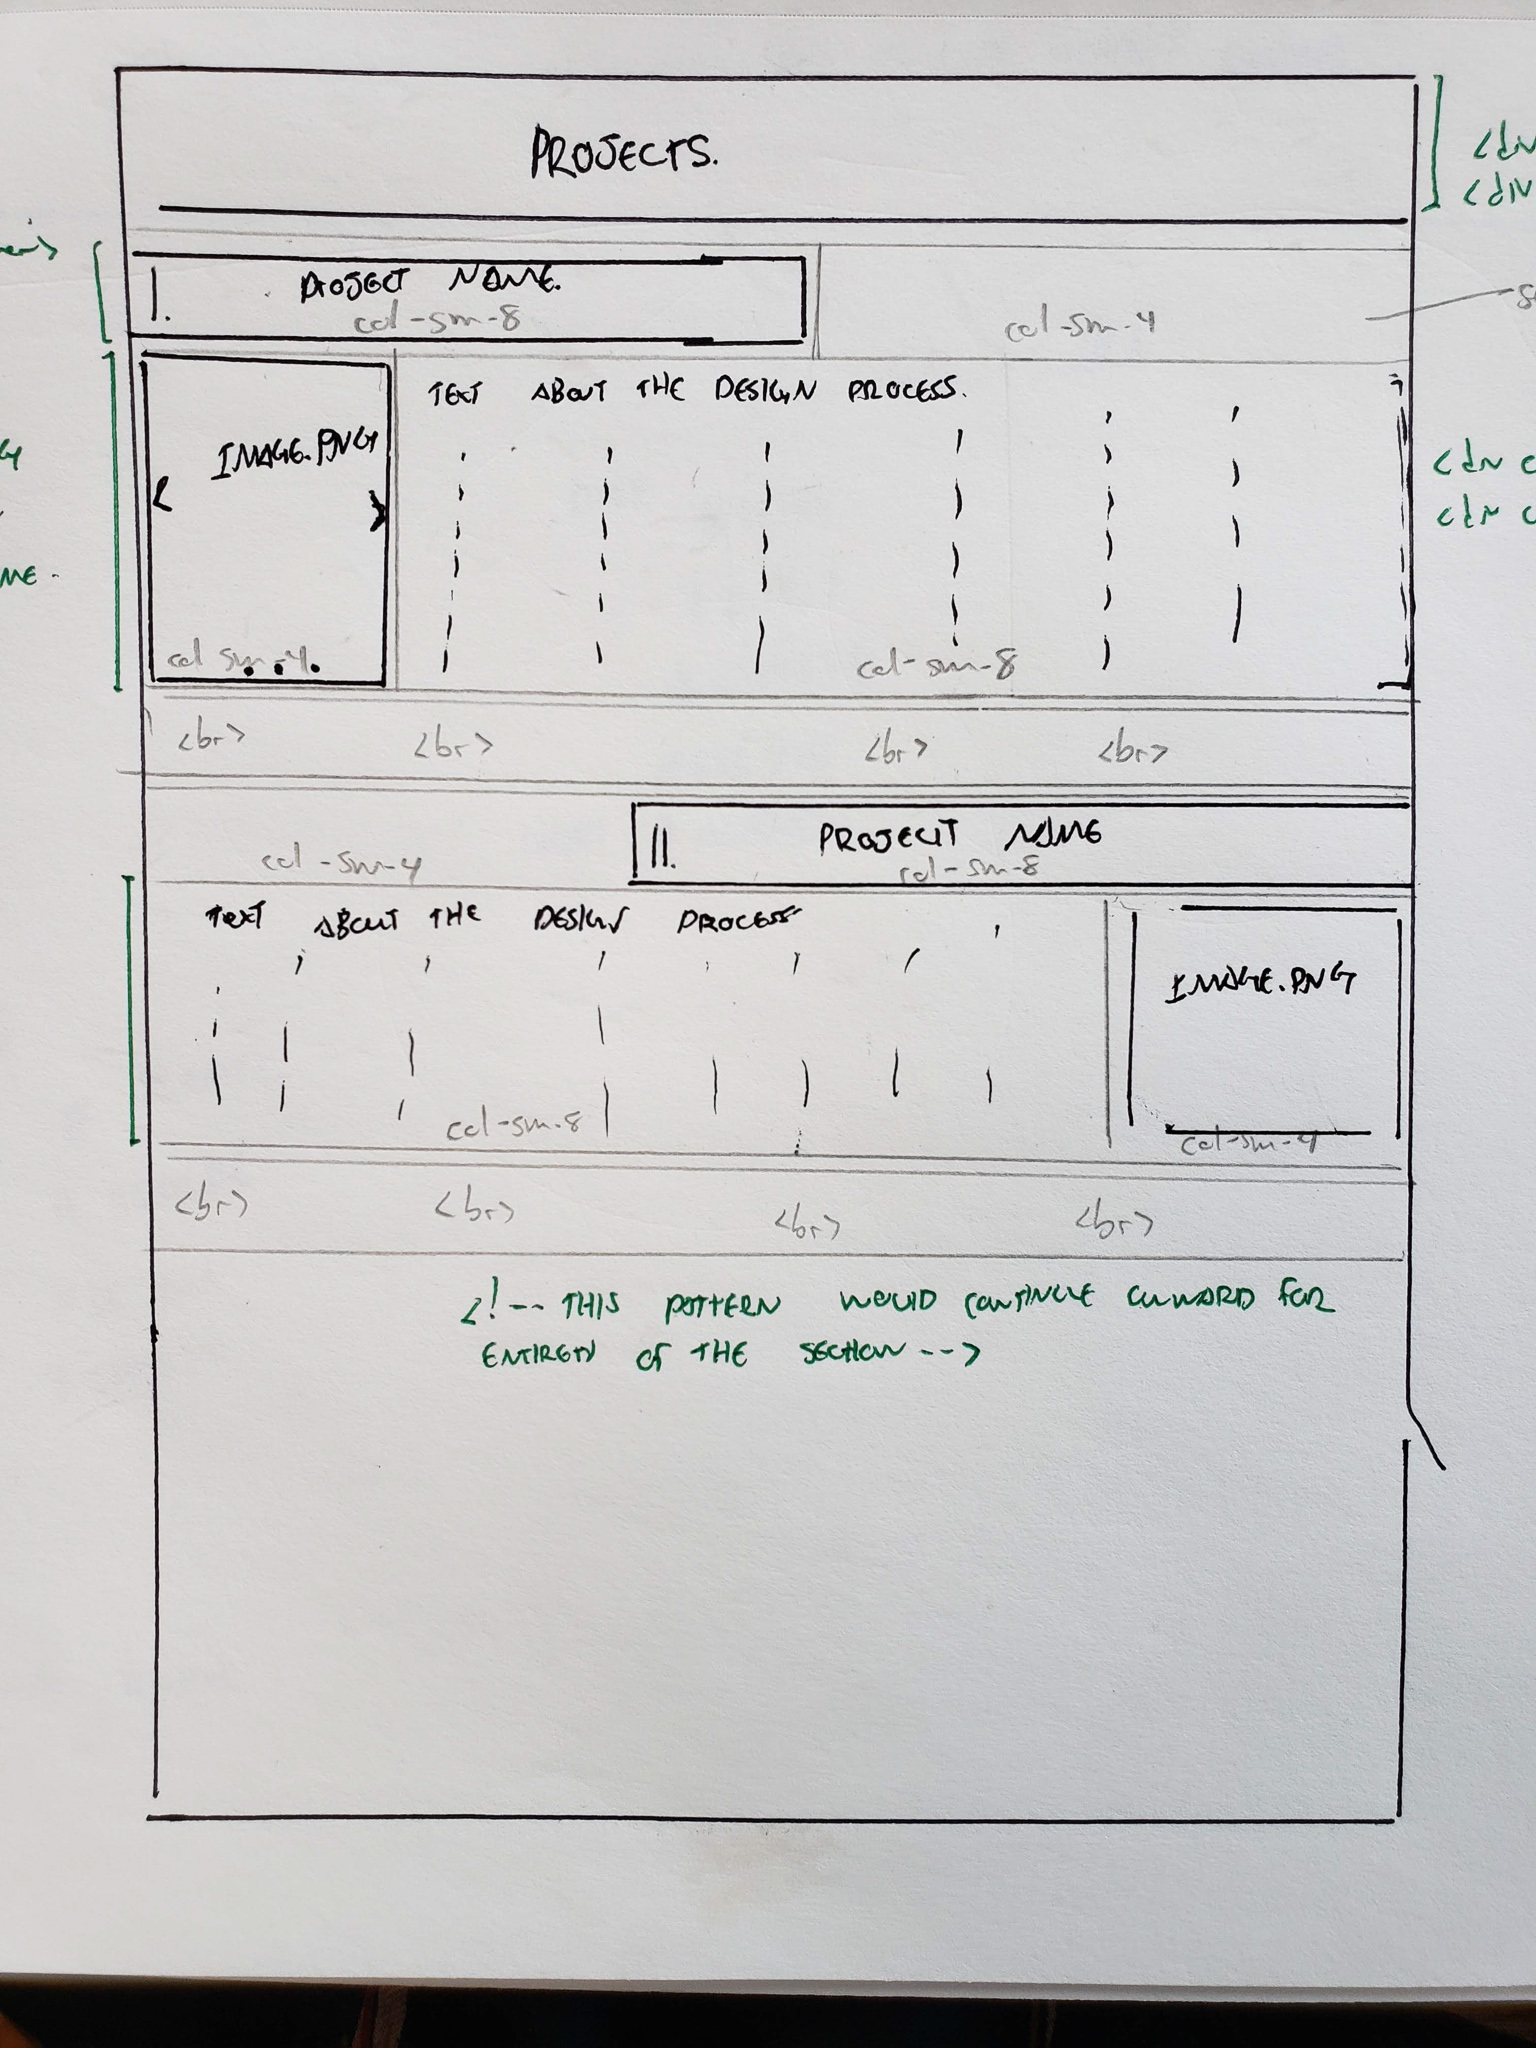 PROJECTS.
<div
<div
I. PROJECT NAME.
col-sm-8
col-sm-4
IMAGE.PNG
< >
col sm-4.
TEXT ABOUT THE DESIGN PROCESS.
col-sm-8
<div c
<div c
<br> <br> <br> <br>
col-sm-4
II. PROJECT NAME
col-sm-8
TEXT ABOUT THE DESIGN PROCESS
col-sm-8
IMAGE.PNG
col-sm-4
<br> <br> <br> <br>
<!-- THIS PATTERN WOULD CONTINUE ONWARD FOR
ENTIRETY OF THE SECTION -->